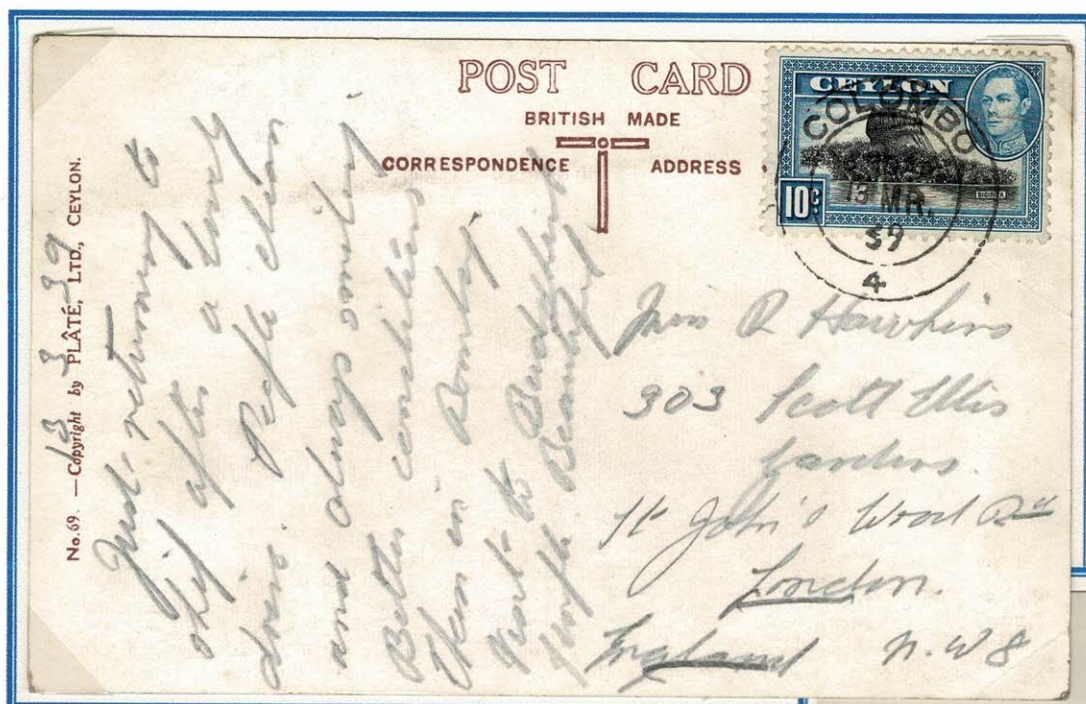 POST CARD
BRITISH MADE
CORRESPONDENCE
ADDRESS
CEYLON
10c
SIGIRIYA
COLOMBO
13 MR.
39
4
No. 69. — Copyright by PLÂTÉ, LTD., CEYLON.
13-3-39
Just returned to
ship after a lovely
drive. People clean
and always smiling
Better conditions
than in Bombay
Visit to Buddhist
temple Beautiful
R Hawkins
303 Scott Ellis
Gardens.
St John's Wood Rd
London.
England N.W 8